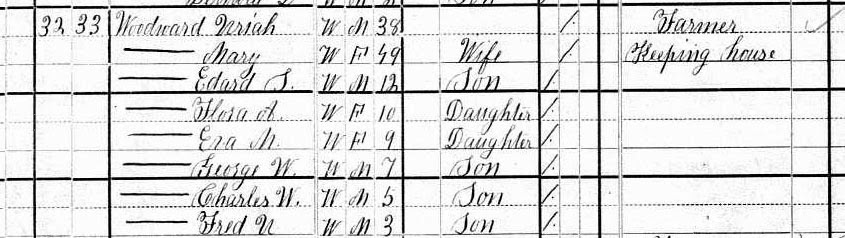 32 33 Woodward Uriah W M 38 / Farmer
—— Mary W F 49 Wife / Keeping house
—— Edard S. W M 12 Son /
—— Flora A. W F 10 Daughter /
—— Eva M. W F 9 Daughter /
—— George W. W M 7 Son /
—— Charles W. W M 5 Son /
—— Fred U W M 3 Son /